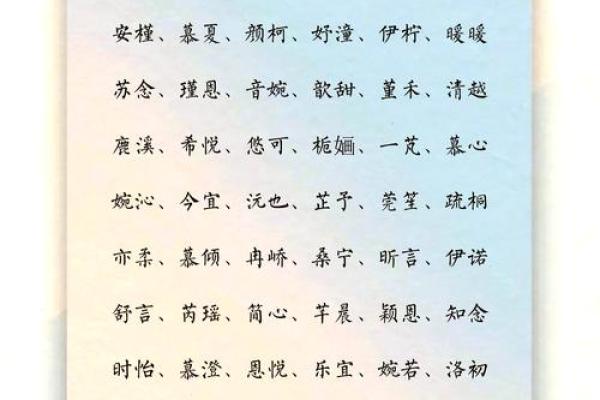 安槿、慕夏、颜柯、妤潼、伊柠、暖暖
苏念、瑾恩、音婉、歆甜、堇禾、清越
鹿溪、希悦、悠可、栀婳、一芃、慕心
婉沁、今宜、沅也、芷予、莞笙、疏桐
亦柔、慕倾、冉峤、桑宁、昕言、伊诺
舒言、芮瑶、简心、芊晨、颖恩、知念
时怡、慕澄、恩悦、乐宜、婉若、洛初